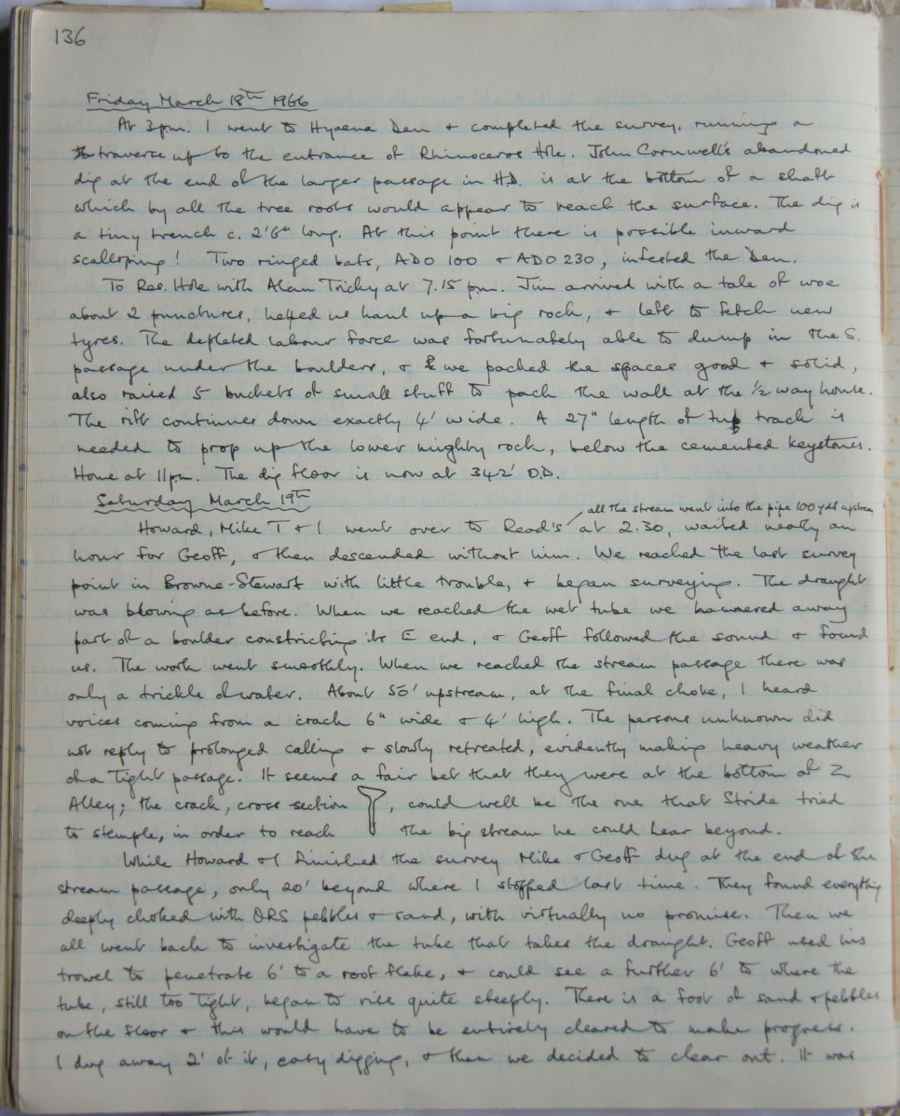 136
Friday March 18th 1966
At 3pm. I went to Hyaena Den + completed the survey, running a
traverse up to the entrance of Rhinoceros Hole. John Cornwell's abandoned
dig at the end of the larger passage in H.D. is at the bottom of a shaft
which by all the tree roots would appear to reach the surface. The dig is
a tiny trench c. 2'6" long. At this point there is possible inward
scalloping! Two ringed bats, ADO 100 + ADO 230, infested the Den.
To Res. Hole with Alan Trickey at 7.15 pm. Jim arrived with a tale of woe
about 2 punctures, helped us haul up a big rock, + left to fetch new
tyres. The depleted labour force was fortunately able to dump in the S.
passage under the boulders, + we packed the spaces good + solid,
also raised 5 buckets of small stuff to pack the wall at the ½ way house.
The rift continues down exactly 4' wide. A 27" length of track is
needed to prop up the lower mighty rock, below the cemented keystones.
Home at 11pm. The dig floor is now at 342' O.D.
Saturday March 19th
all the stream went into the pipe 100 yds upstream
Howard, Mike T + I went over to Read's at 2.30, waited nearly an
hour for Geoff, + then descended without him. We reached the last survey
point in Browne-Stewart with little trouble, + began surveying. The draught
was blowing as before. When we reached the wet tube we hammered away
part of a boulder constricting its E end, + Geoff followed the sound + found
us. The work went smoothly. When we reached the stream passage there was
only a trickle of water. About 55' upstream, at the final choke, I heard
voices coming from a crack 6" wide + 4' high. The persons unknown did
not reply to prolonged calling + slowly retreated, evidently making heavy weather
of a tight passage. It seems a fair bet that they were at the bottom of Z
Alley; the crack, cross-section , could well be the one that Stride tried
to stemple, in order to reach the big stream he could hear beyond.
While Howard + I finished the survey Mike + Geoff dug at the end of the
stream passage, only 20' beyond where I stopped last time. They found everything
deeply choked with ORS pebbles + sand, with virtually no promise. Then we
all went back to investigate the tube that takes the draught. Geoff used his
trowel to penetrate 6' to a roof flake, + could see a further 6' to where the
tube, still too tight, began to rise quite steeply. There is a foot of sand + pebbles
on the floor + this would have to be entirely cleared to make progress.
I dug away 2' of it, easy digging, + then we decided to clear out. It was